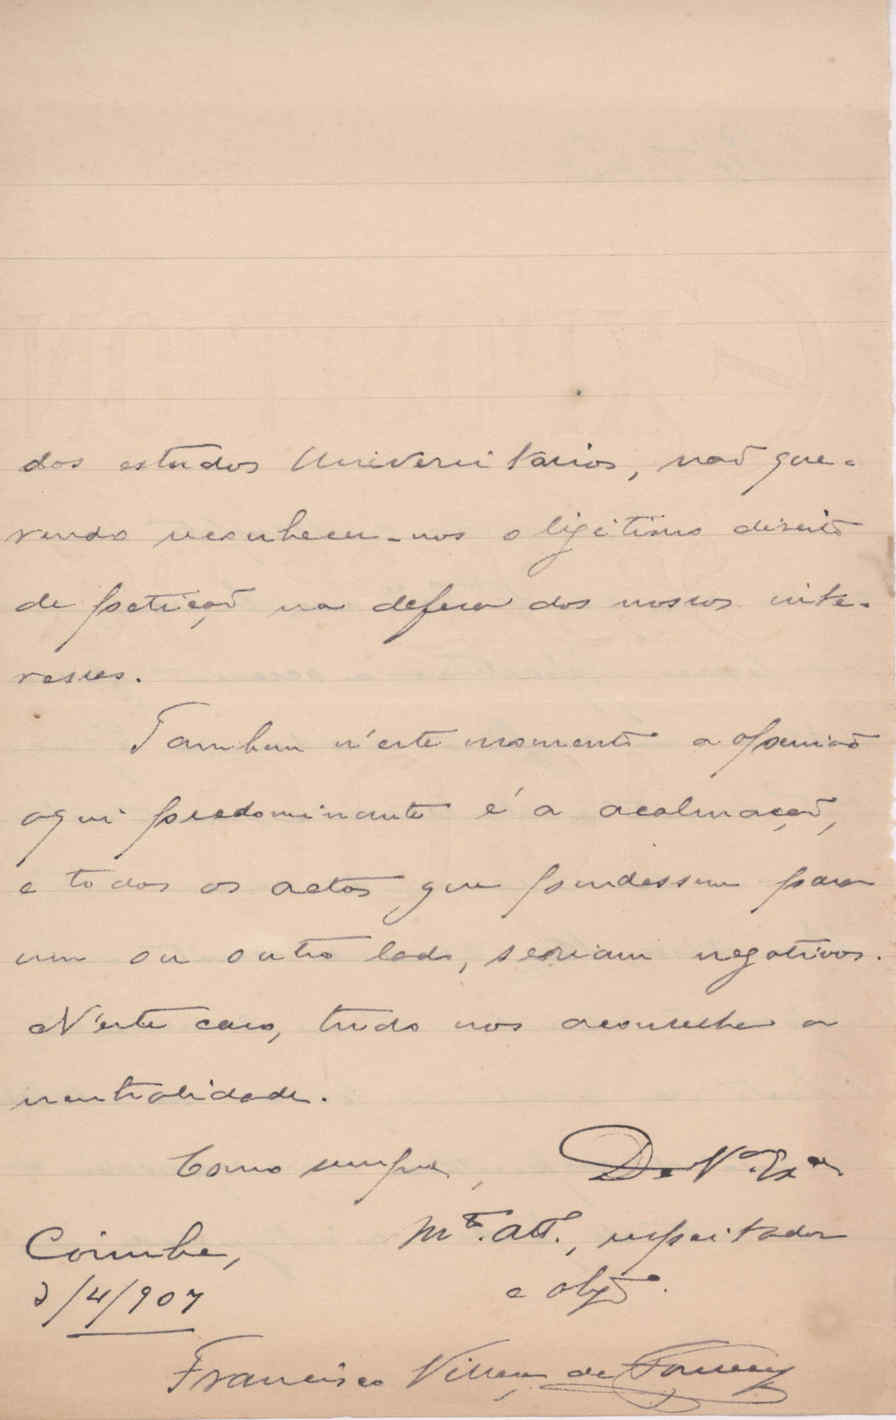 dos estudos Universitarios, naõ que-
rendo reconhecer-nos o ligitimo direito
de petiçaõ na defesa dos nossos inte-
resses.
Tambem n'este momento a opiniaõ
aqui predominante é a acalmaçaõ,
e todos os actos que pendessem para
um ou outro lado, seriam negativos.
N'este caso, tudo nos aconselha a
neutralidade.
Como sempre, De Vª. Exª
Mt. att., respeitador
Coimbra,
e obgdº.
/4/907
Francisco Villaça da